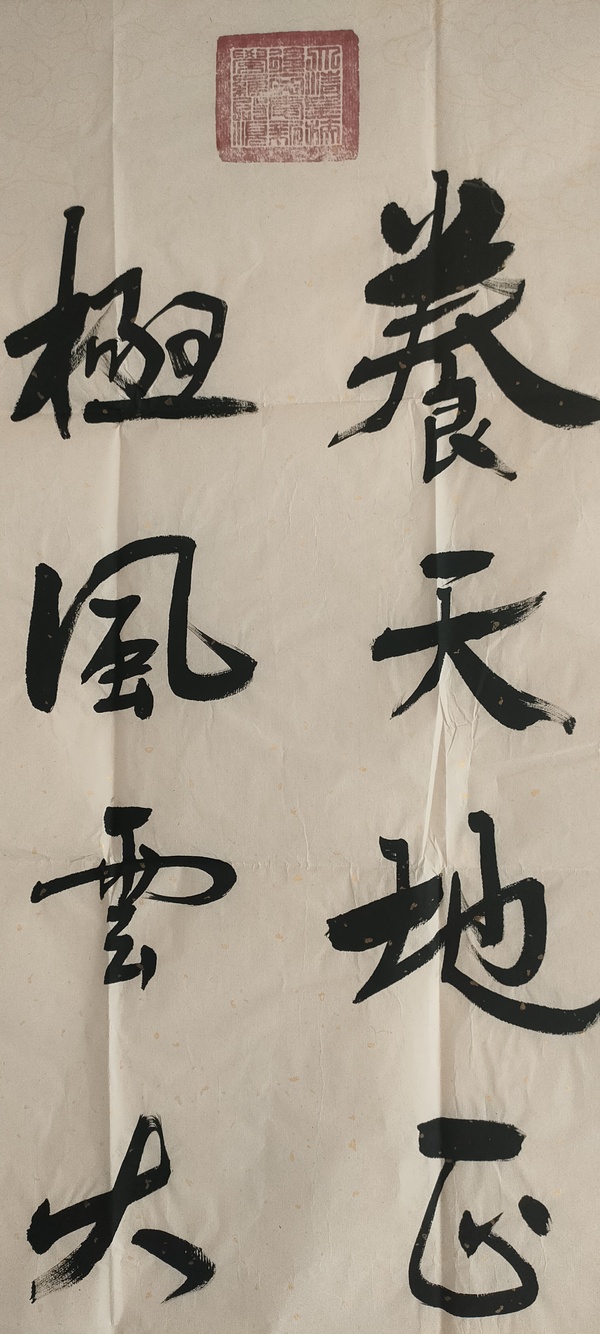 養天地正
極風雲大